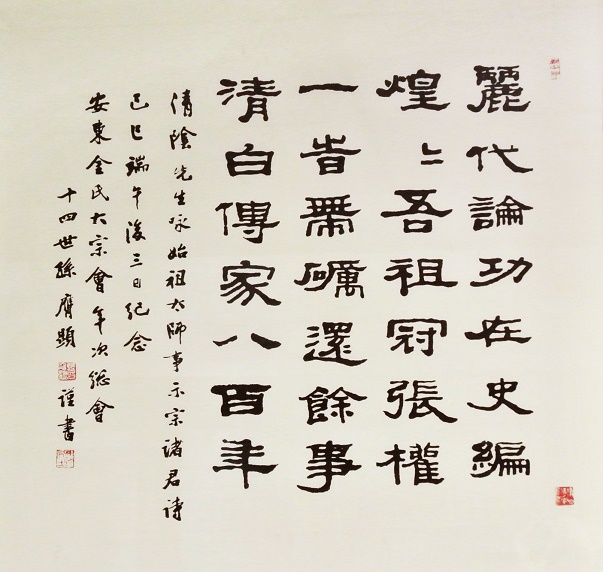 麗代論功在史編
煌〻吾祖冠張權
一旹帶礪還餘事
清白傳家八百年
清陰先生咏始祖太師事示宗諸君詩
己巳端午後三日紀念
安東金氏大宗會年次總會
十四世孫膺顯謹書